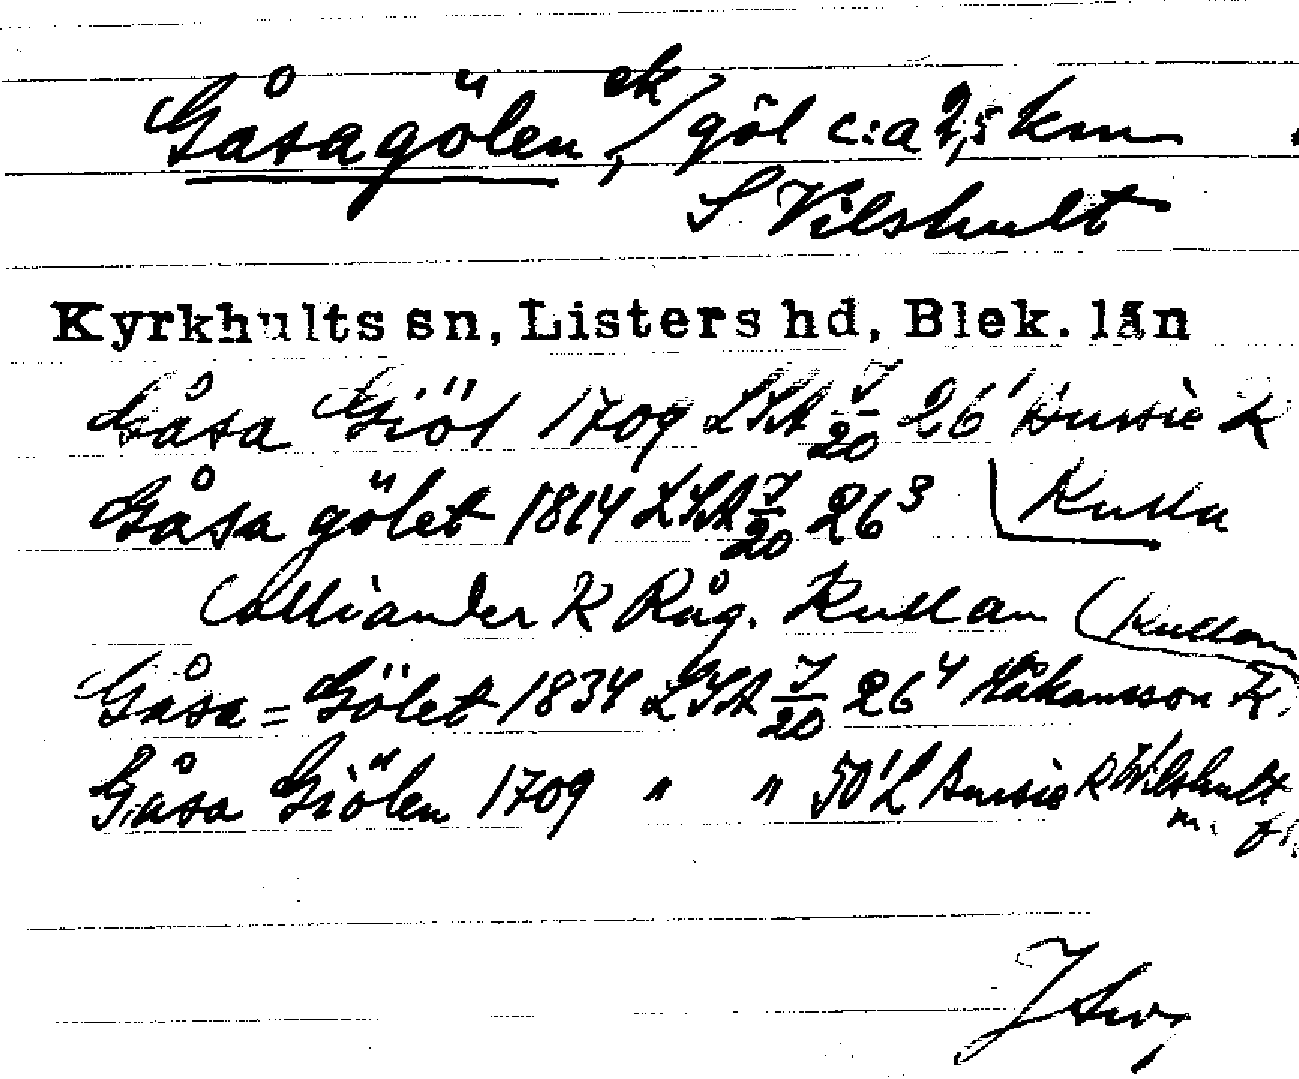 Gåsagölen, ek / göl c:a 2,5 km
S Vilshult
Kyrkhults sn, Listers hd, Blek. län
Gåsa Giöl 1709 LSA 7/20 26¹ Bursie K
Gåsa gölet 1814 LSA 7/20 26³ Kulla
Colliander K Råg. Kullan (Kullan
Gåsa=Gölet 1834 LSA 7/20 26⁴ Håkansson K.
Gåsa Giölen 1709 " " 50¹ L Bursie K Wilshult
m. fl.